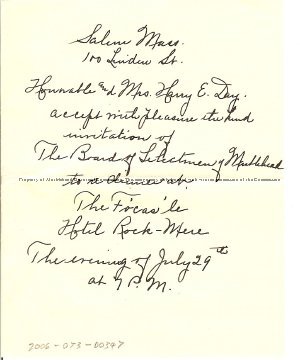 Salem Mass.
100 Linden St.
Honorable and Mrs. Harry E. Day.
accept with pleasure the kind
invitation of
The Board of Selectmen of Marblehead
to a dinner at
The Fo'cas'le
Hotel Rock-Mere
The evening of July 29th
at 7 P.M.
2006-073-00347